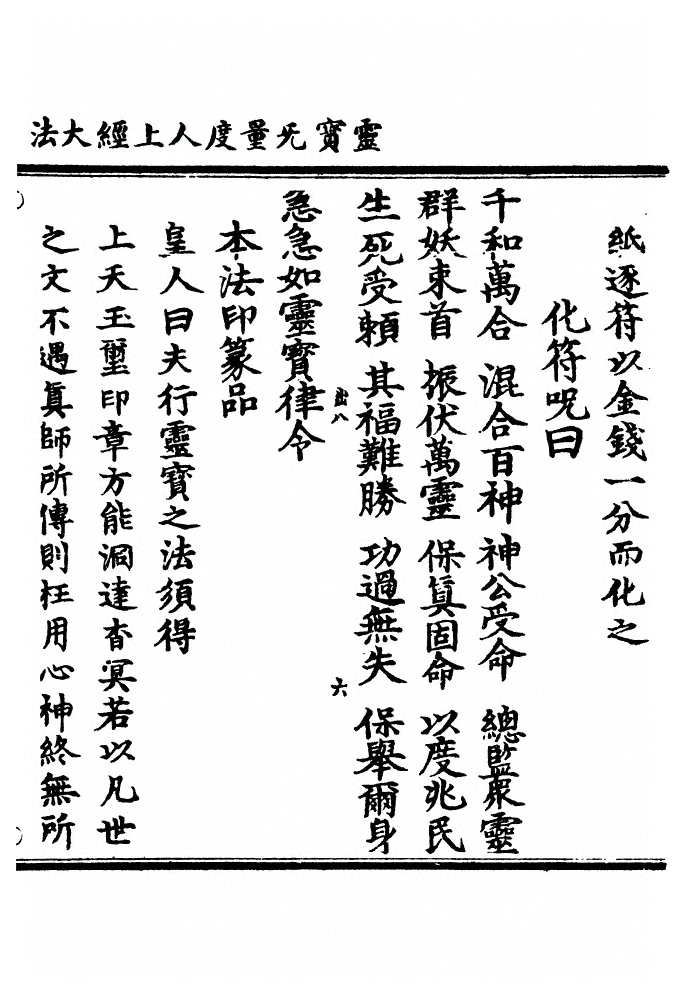 靈寳旡量度人上經大法
紙逐符以金錢一分而化之
化符呪曰
千和萬合 混合百神 神公受命 總監衆靈
群妖束首 振伏萬靈 保眞固命 以度兆民
生死受賴 其福難勝 功過無失 保舉爾身
六
急急如靈寳律令
本法印篆品
皇人曰夫行靈寳之法須得
上天玉璽印章方能洞達杳冥若以凡世
之文不遇眞師所傳則枉用心神終無所